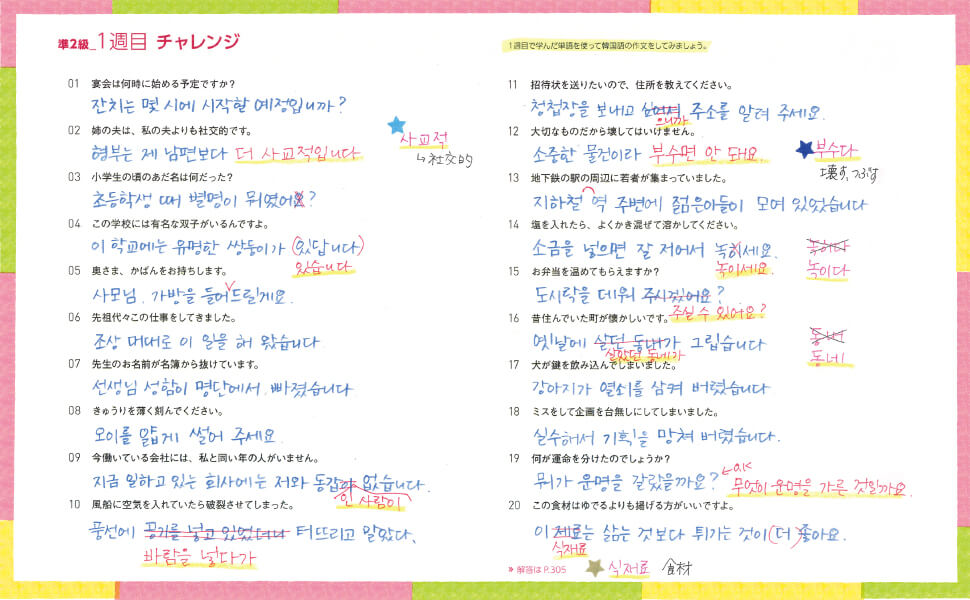 準2級_1週目 チャレンジ
01 宴会は何時に始める予定ですか?
잔치는 몇 시에 시작할 예정입니까?
02 姉の夫は、私の夫よりも社交的です。
형부는 제 남편보다 더 사교적입니다
사교적
↳社交的
03 小学生の頃のあだ名は何だった?
초등학생 때 별명이 뭐였어?
04 この学校には有名な双子がいるんですよ。
이 학교에는 유명한 쌍둥이가 (있답니다)
있습니다
05 奥さま、かばんをお持ちします。
사모님, 가방을 들어 드릴게요.
06 先祖代々この仕事をしてきました。
조상 대대로 이 일을 해 왔습니다
07 先生のお名前が名簿から抜けています。
선생님 성함이 명단에서 빠졌습니다
08 きゅうりを薄く刻んでください。
오이를 얇게 썰어 주세요.
09 今働いている会社には、私と同い年の人がいません。
지금 일하고 있는 회사에는 저와 동갑 없습니다.
인 사람이
10 風船に空気を入れていたら破裂させてしまった。
풍선에 공기를 넣고 있었더니 터뜨리고 말았다.
바람을 넣다가
1週目で学んだ単語を使って韓国語の作文をしてみましょう。
11 招待状を送りたいので、住所を教えてください。
청첩장을 보내고 싶 주소를 알려 주세요.
으니까
12 大切なものだから壊してはいけません。
소중한 물건이라 부수면 안 돼요.
부수다
壊す、つぶす
13 地下鉄の駅の周辺に若者が集まっていました。
지하철 역 주변에 젊은이들이 모여 있었습니다
14 塩を入れたら、よくかき混ぜて溶かしてください。
소금을 넣으면 잘 저어서 녹 세요.
녹이세요.
녹이다
15 お弁当を温めてもらえますか?
도시락을 데워 주시겠어요?
주실 수 있어요?
16 昔住んでいた町が懐かしいです。
옛날에 살던 동내가 그립습니다
살았던 동네가
동내
동네
17 犬が鍵を飲み込んでしまいました。
강아지가 열쇠를 삼켜 버렸습니다
18 ミスをして企画を台無しにしてしまいました。
실수해서 기획을 망쳐 버렸습니다.
19 何が運命を分けたのでしょうか?
뭐가 운명을 갈랐을까요? O.K
무엇이 운명을 가른 것일까요.
20 この食材はゆでるよりも揚げる方がいいですよ。
이 재료는 삶는 것보다 튀기는 것이 (더) 좋아요.
식재료
» 解答は P.305
식재료 食材